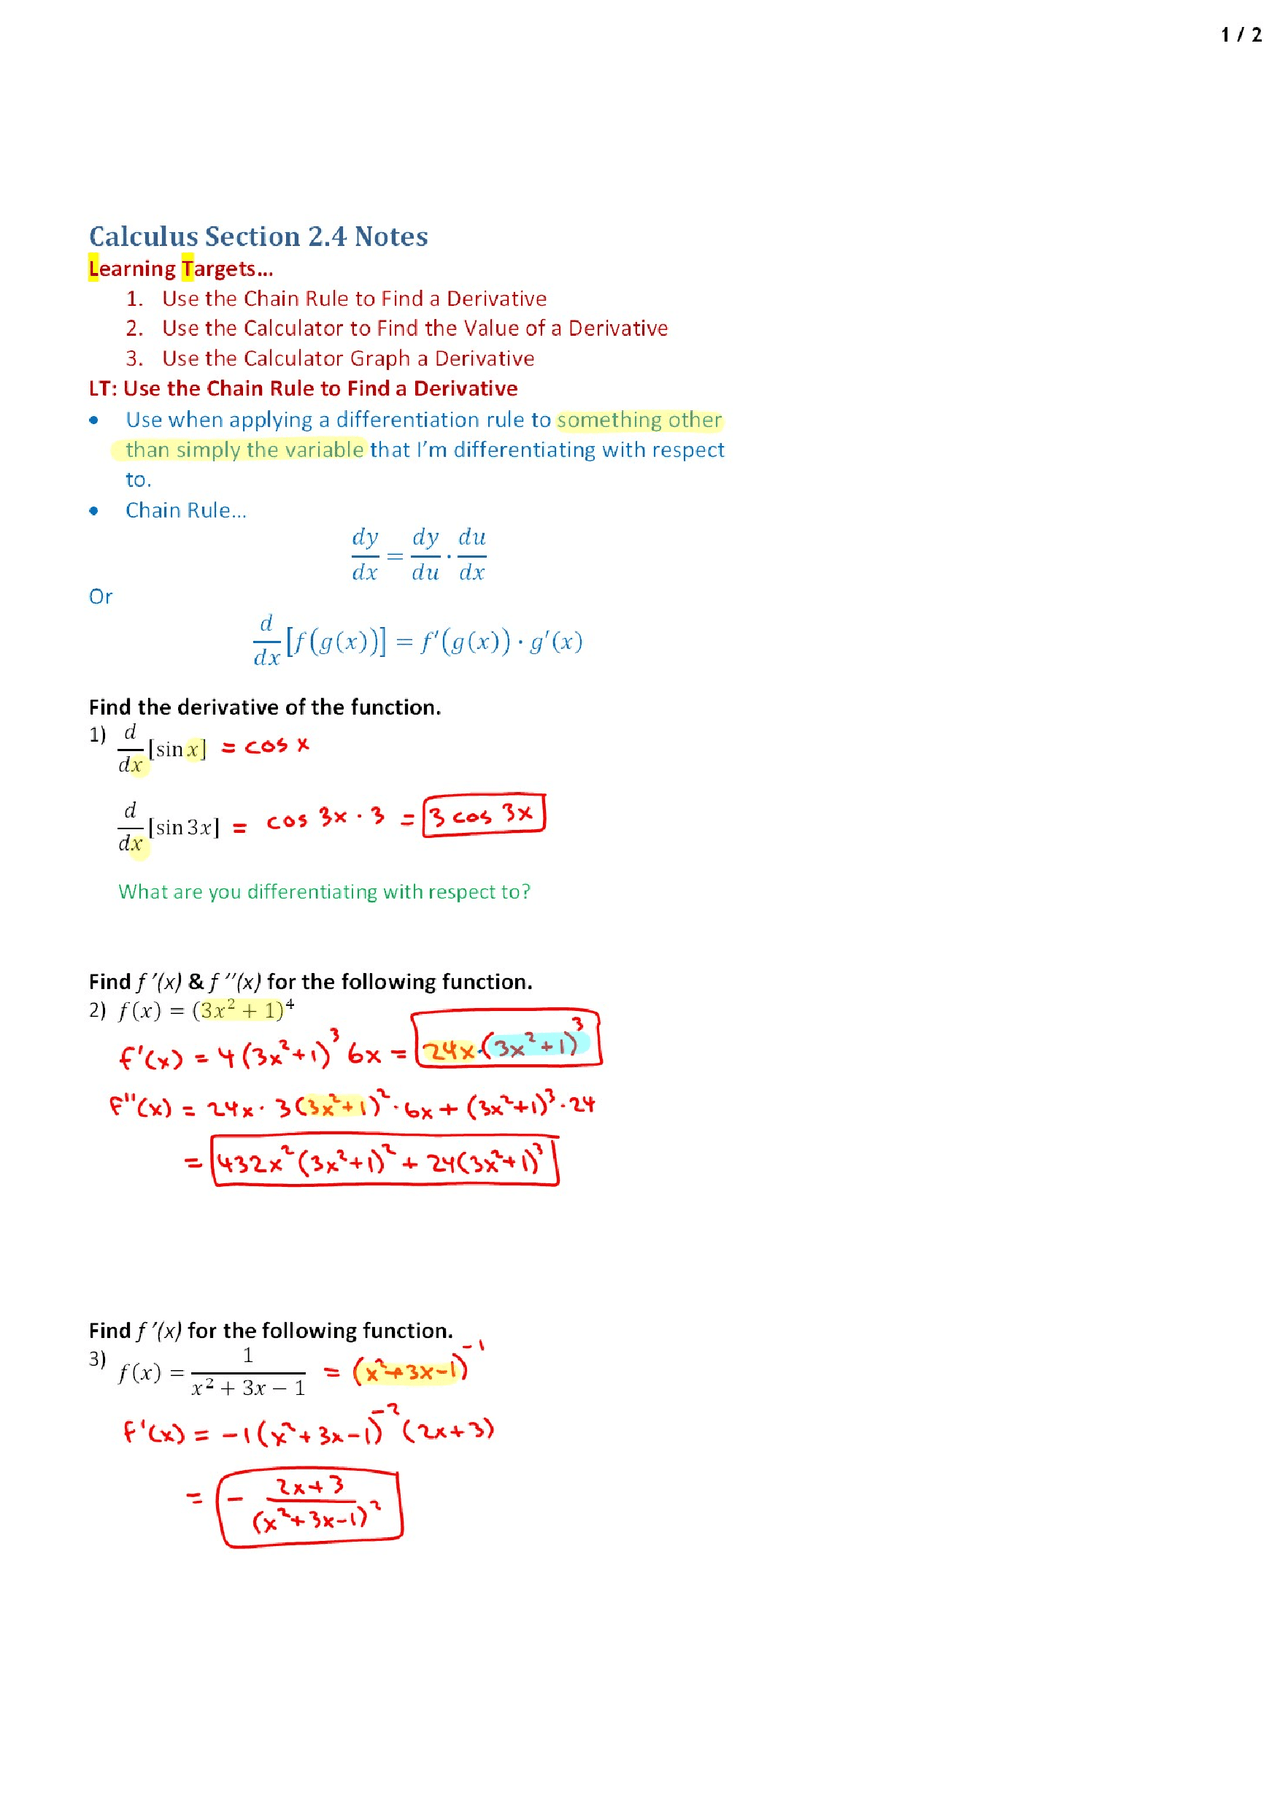 1 / 2
Calculus Section 2.4 Notes
Learning Targets...
1. Use the Chain Rule to Find a Derivative
2. Use the Calculator to Find the Value of a Derivative
3. Use the Calculator Graph a Derivative
LT: Use the Chain Rule to Find a Derivative
• Use when applying a differentiation rule to something other
than simply the variable that I'm differentiating with respect
to.
• Chain Rule...
dy/dx = dy/du · du/dx
Or
d/dx [f(g(x))] = f′(g(x)) · g′(x)
Find the derivative of the function.
1) d/dx [sin x] = cos x
d/dx [sin 3x] = cos 3x · 3 = 3 cos 3x
What are you differentiating with respect to?
Find f ′(x) & f ′′(x) for the following function.
2) f(x) = (3x² + 1)⁴
f'(x) = 4(3x²+1)³ 6x = 24x·(3x²+1)³
f''(x) = 24x · 3(3x²+1)² · 6x + (3x²+1)³ · 24
= 432x²(3x²+1)² + 24(3x²+1)³
Find f ′(x) for the following function.
3) f(x) = 1/(x² + 3x − 1) = (x²+3x−1)⁻¹
f'(x) = −1(x²+3x−1)⁻² (2x+3)
= − (2x+3)/(x²+3x−1)²